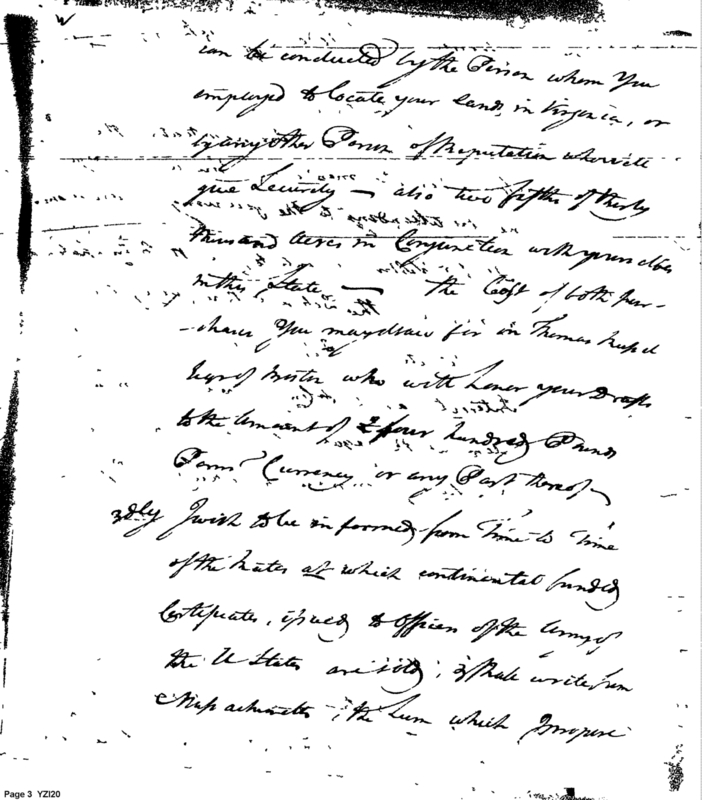 can be conducted by the Person whom You
employed to locate your lands in Virginia, or
by any other Person of Reputation who will
give Security — also two fifths of thirty
thousand Acres in Conjunction with yourselves
in this State — the Cost of both Pur-
-chases You may draw for on Thomas Russel
Esqr of Boston who will honor your Drafts
to the amount of four hundred Pounds
Penns Currency or any Part thereof —
3dly I wish to be informed from Time to Time
of the Rates at which continental funded
Certificates, issued to Officers of the Army of
the U States are sold; I shall write from
Massachusetts; the Sum which I propose
Page 3 YZI20